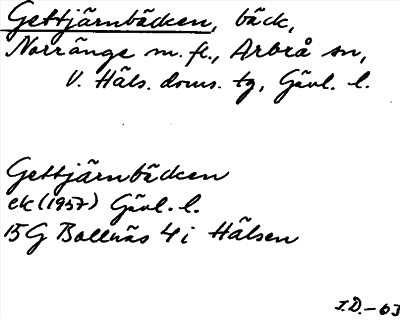 Gettjärnbäcken, bäck,
Norränge m. fl., Arbrå sn,
V. Häls. doms. tg, Gävl. l.
Gettjärnbäcken
ek (1957) Gävl. l.
15G Bollnäs 4i Hälsen
I.D.-63